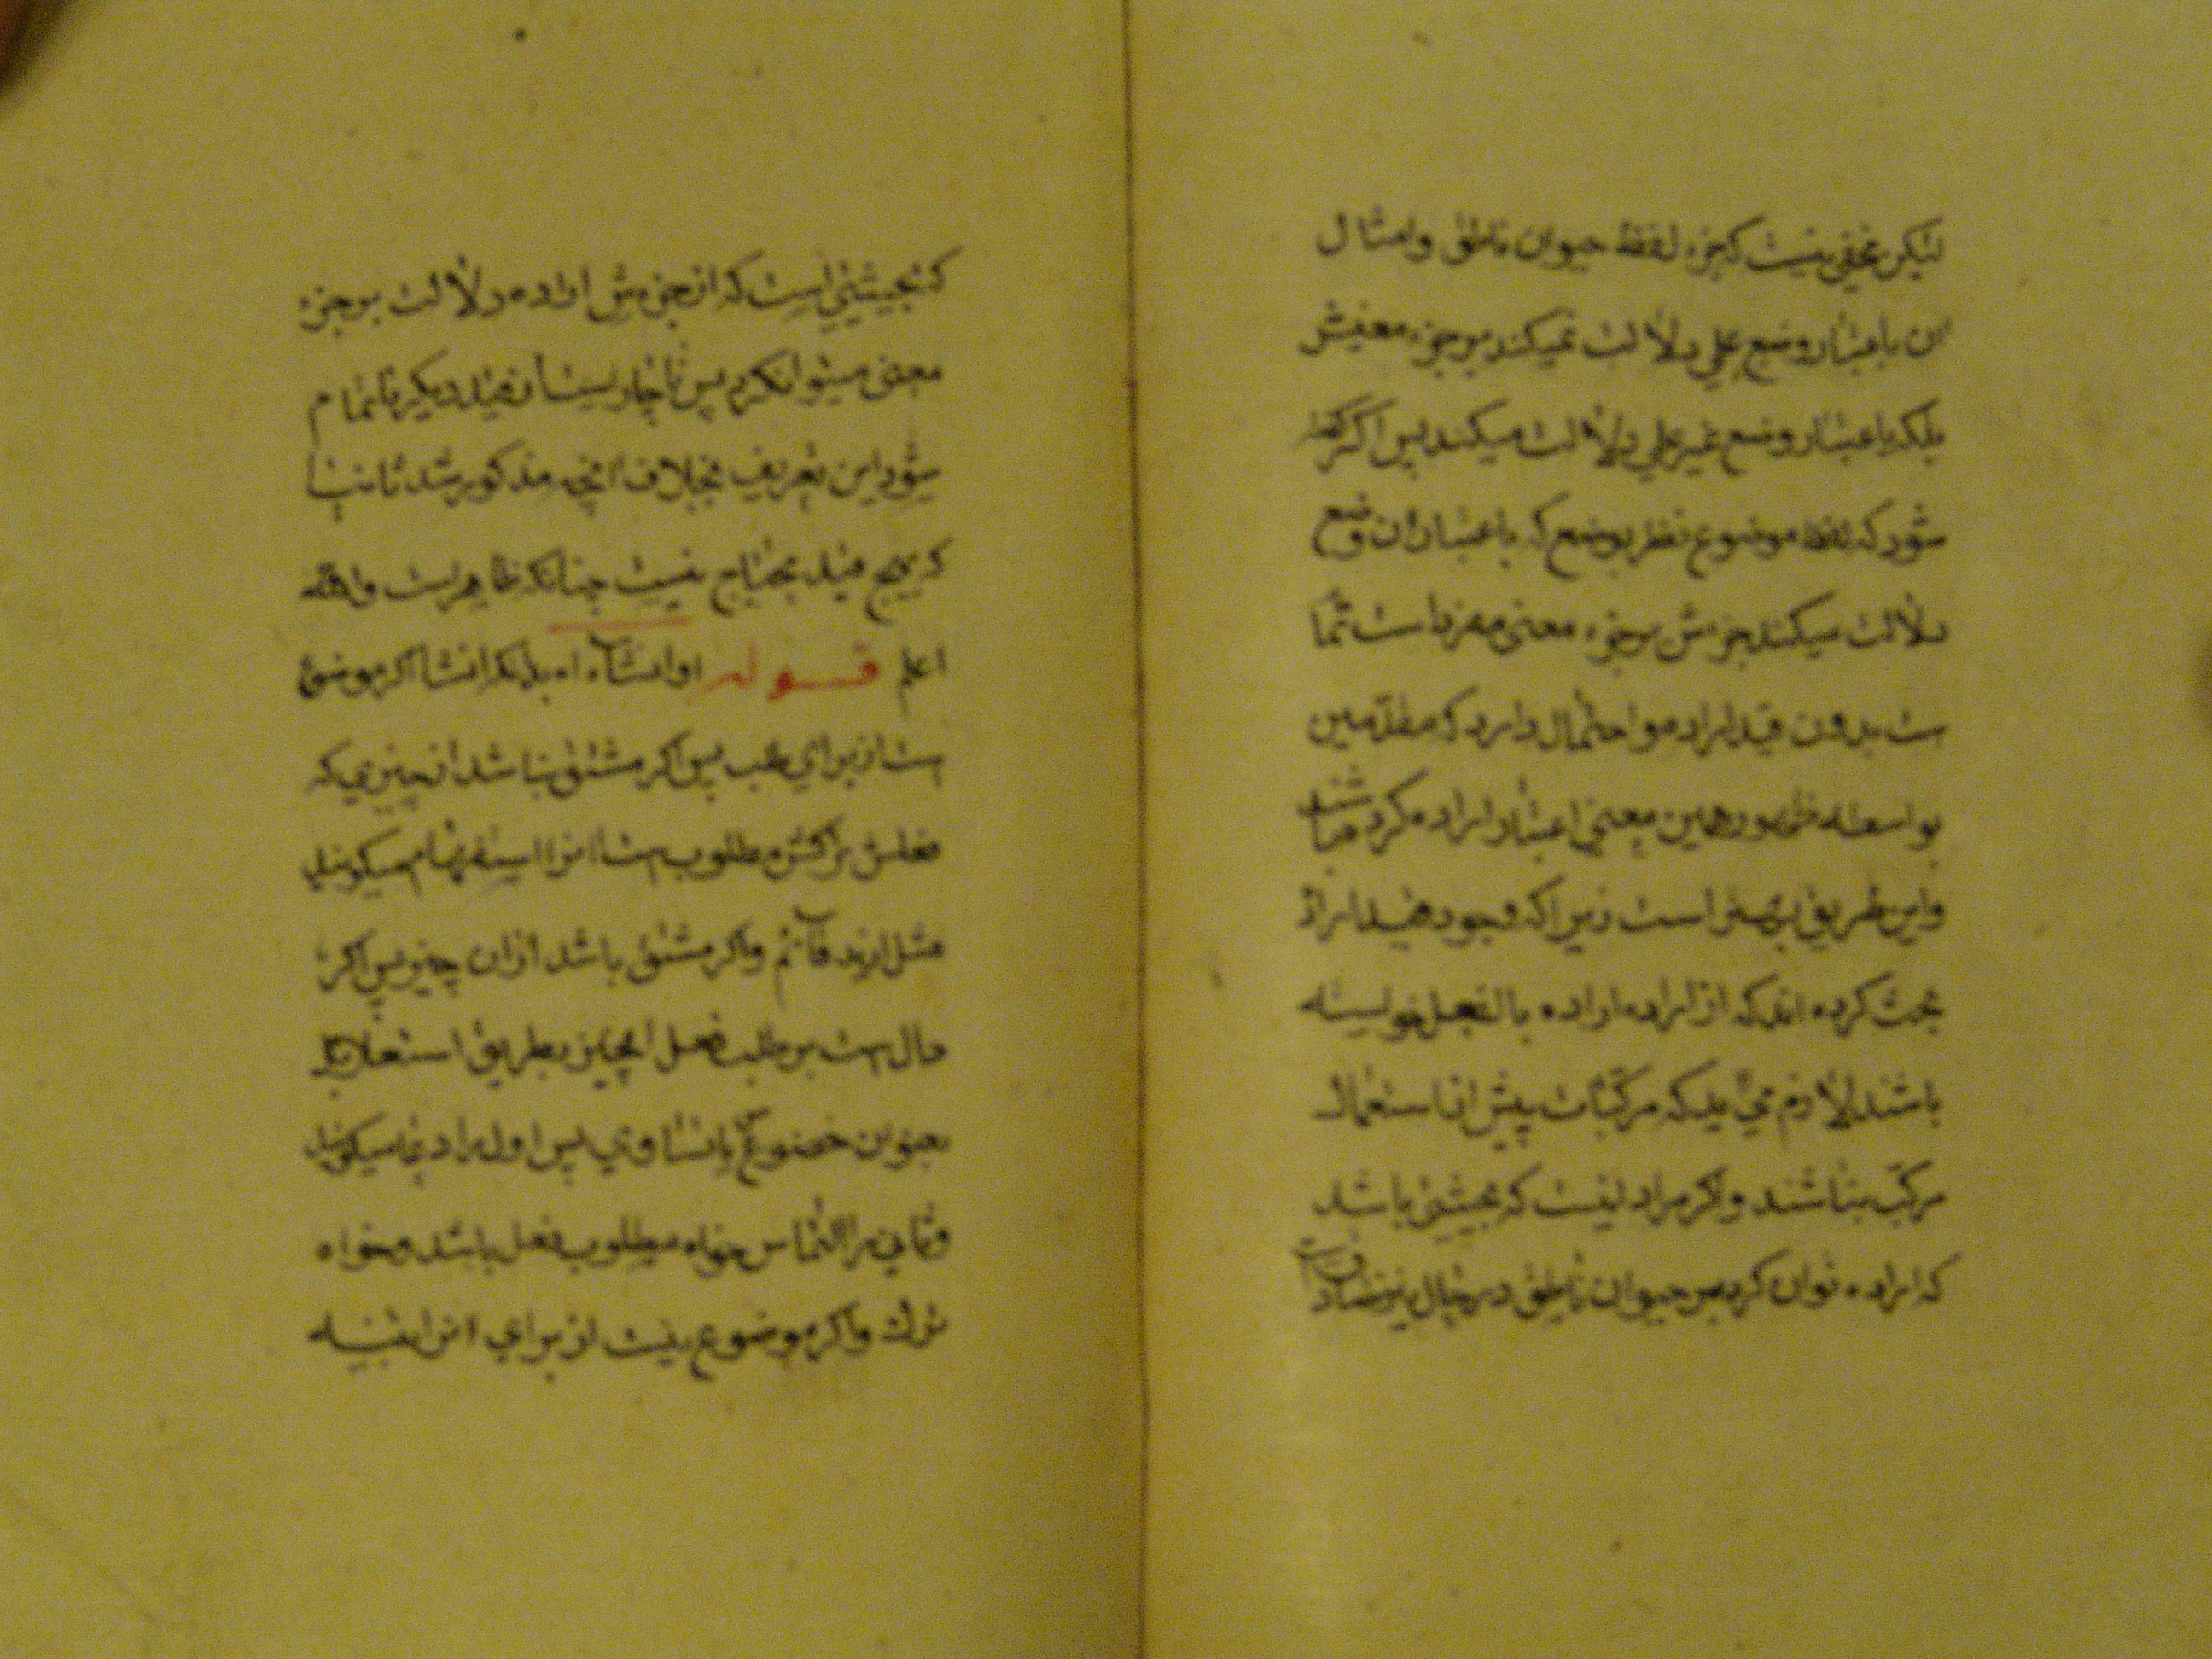 لیکن مخفی نیست که جزء لفظ حیوان ناطق وامثال
ان باعتبار وضع علمي دلالت نمیکند بر جزء معنیش
بلکه باعتبار وضع غیر علمي دلالت میکند پس اکر کفته
شود که لفظ موضوع نظر بوضع که باعتبار ان وضع
دلالت میکند جزش بر جزء معنی مفرد است تما
ست بدون قید اراده واحتمال دارد که مقدّمین
بواسطه ظهور همین معنی اعتبار اراده کرده باشند
واین طریق بهتر است زیراکه وجود قید اراده
بحث کرده اندکه از اراده اراده بالفعل خواسته
باشند لازم می یدکه مرکبات پیش از استعمال
مرکب نباشند واکر مراد اینست که بحیثیتی باشد
که اراده توان کرد پس حیوان ناطق در حال
که بحیثیتی است که از جزءش اراده دلالت بر جزء
معنی میتوان کرد پس ناچار است از قید دیکر تا تمام
شود این تعریف بخلاف انچه مذکور شد ثانیا
که بهیچ قید محتاج نیست چنانکه ظاهر است والله
اعلم قوله او انشاء اه بدانکه انشا اکر موضوع
است از برای طلب پس اکر مشتق نباشد از چیزي که
فعلش یا ترکش مطلوب است انرا استفهام میکویند
مثل ازید قائم واکر مشتق باشد ازان چیز پس اکر
دال است بر طلب فعل انچیز بطریق استعلا یا
بعنوان خضوع یا تساوي پس اول را امر میکویند
وثانی را التماس خواه مطلوب فعل باشد وخواه
ترك واکر موضوع نیست از برای انرا تنبیه